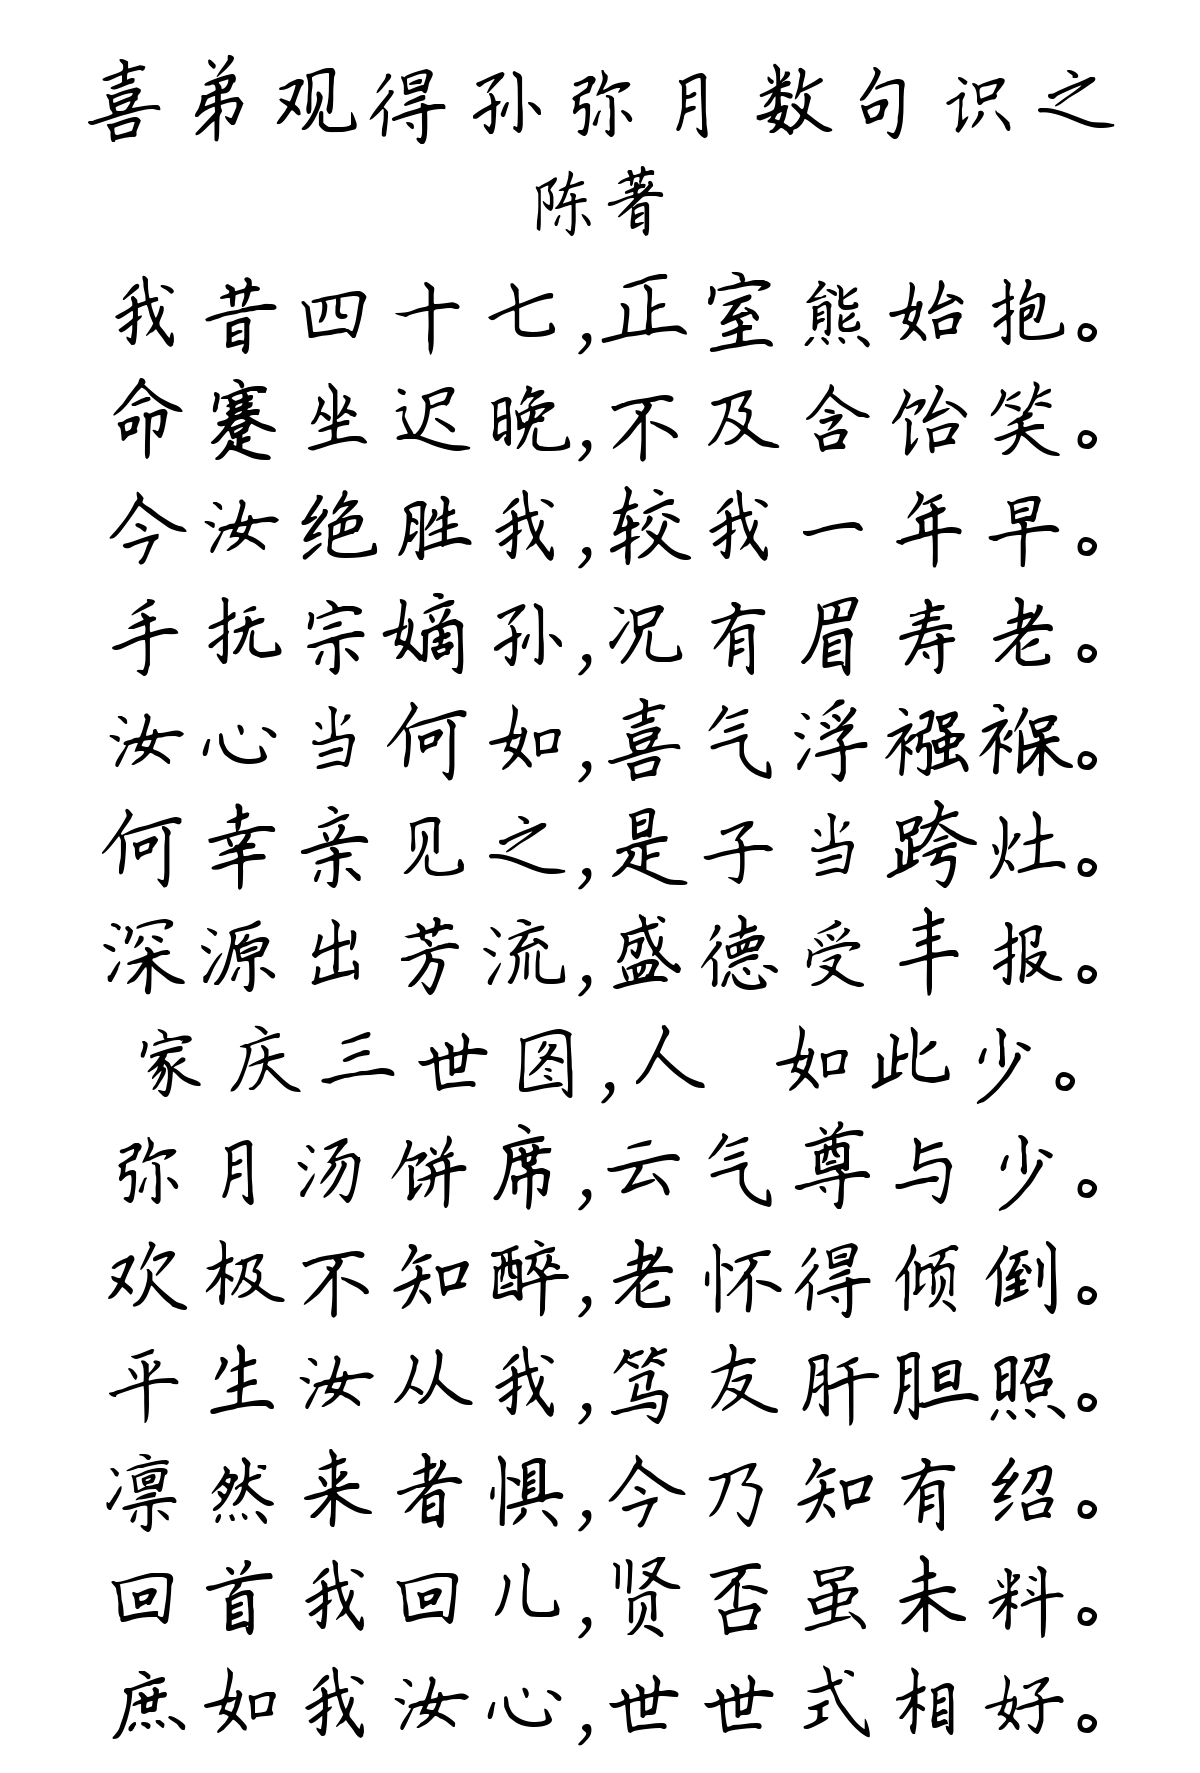 喜弟观得孙弥月数句识之
陈著
我昔四十七,正室熊始抱。
命蹇坐迟晚,不及含饴笑。
今汝绝胜我,较我一年早。
手抚宗嫡孙,况有眉寿老。
汝心当何如,喜气浮襁褓。
何幸亲见之,是子当跨灶。
深源出芳流,盛德受丰报。
家庆三世图,人 如此少。
弥月汤饼席,云气尊与少。
欢极不知醉,老怀得倾倒。
平生汝从我,笃友肝胆照。
凛然来者惧,今乃知有绍。
回首我回儿,贤否虽未料。
庶如我汝心,世世式相好。